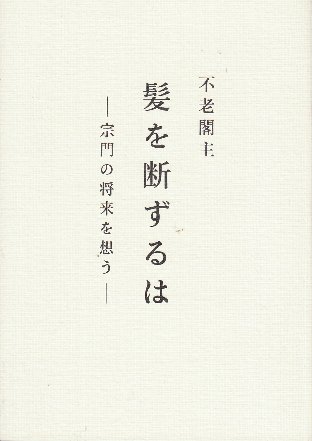 不老閣主
髪を断ずるは
―宗門の将来を想う―